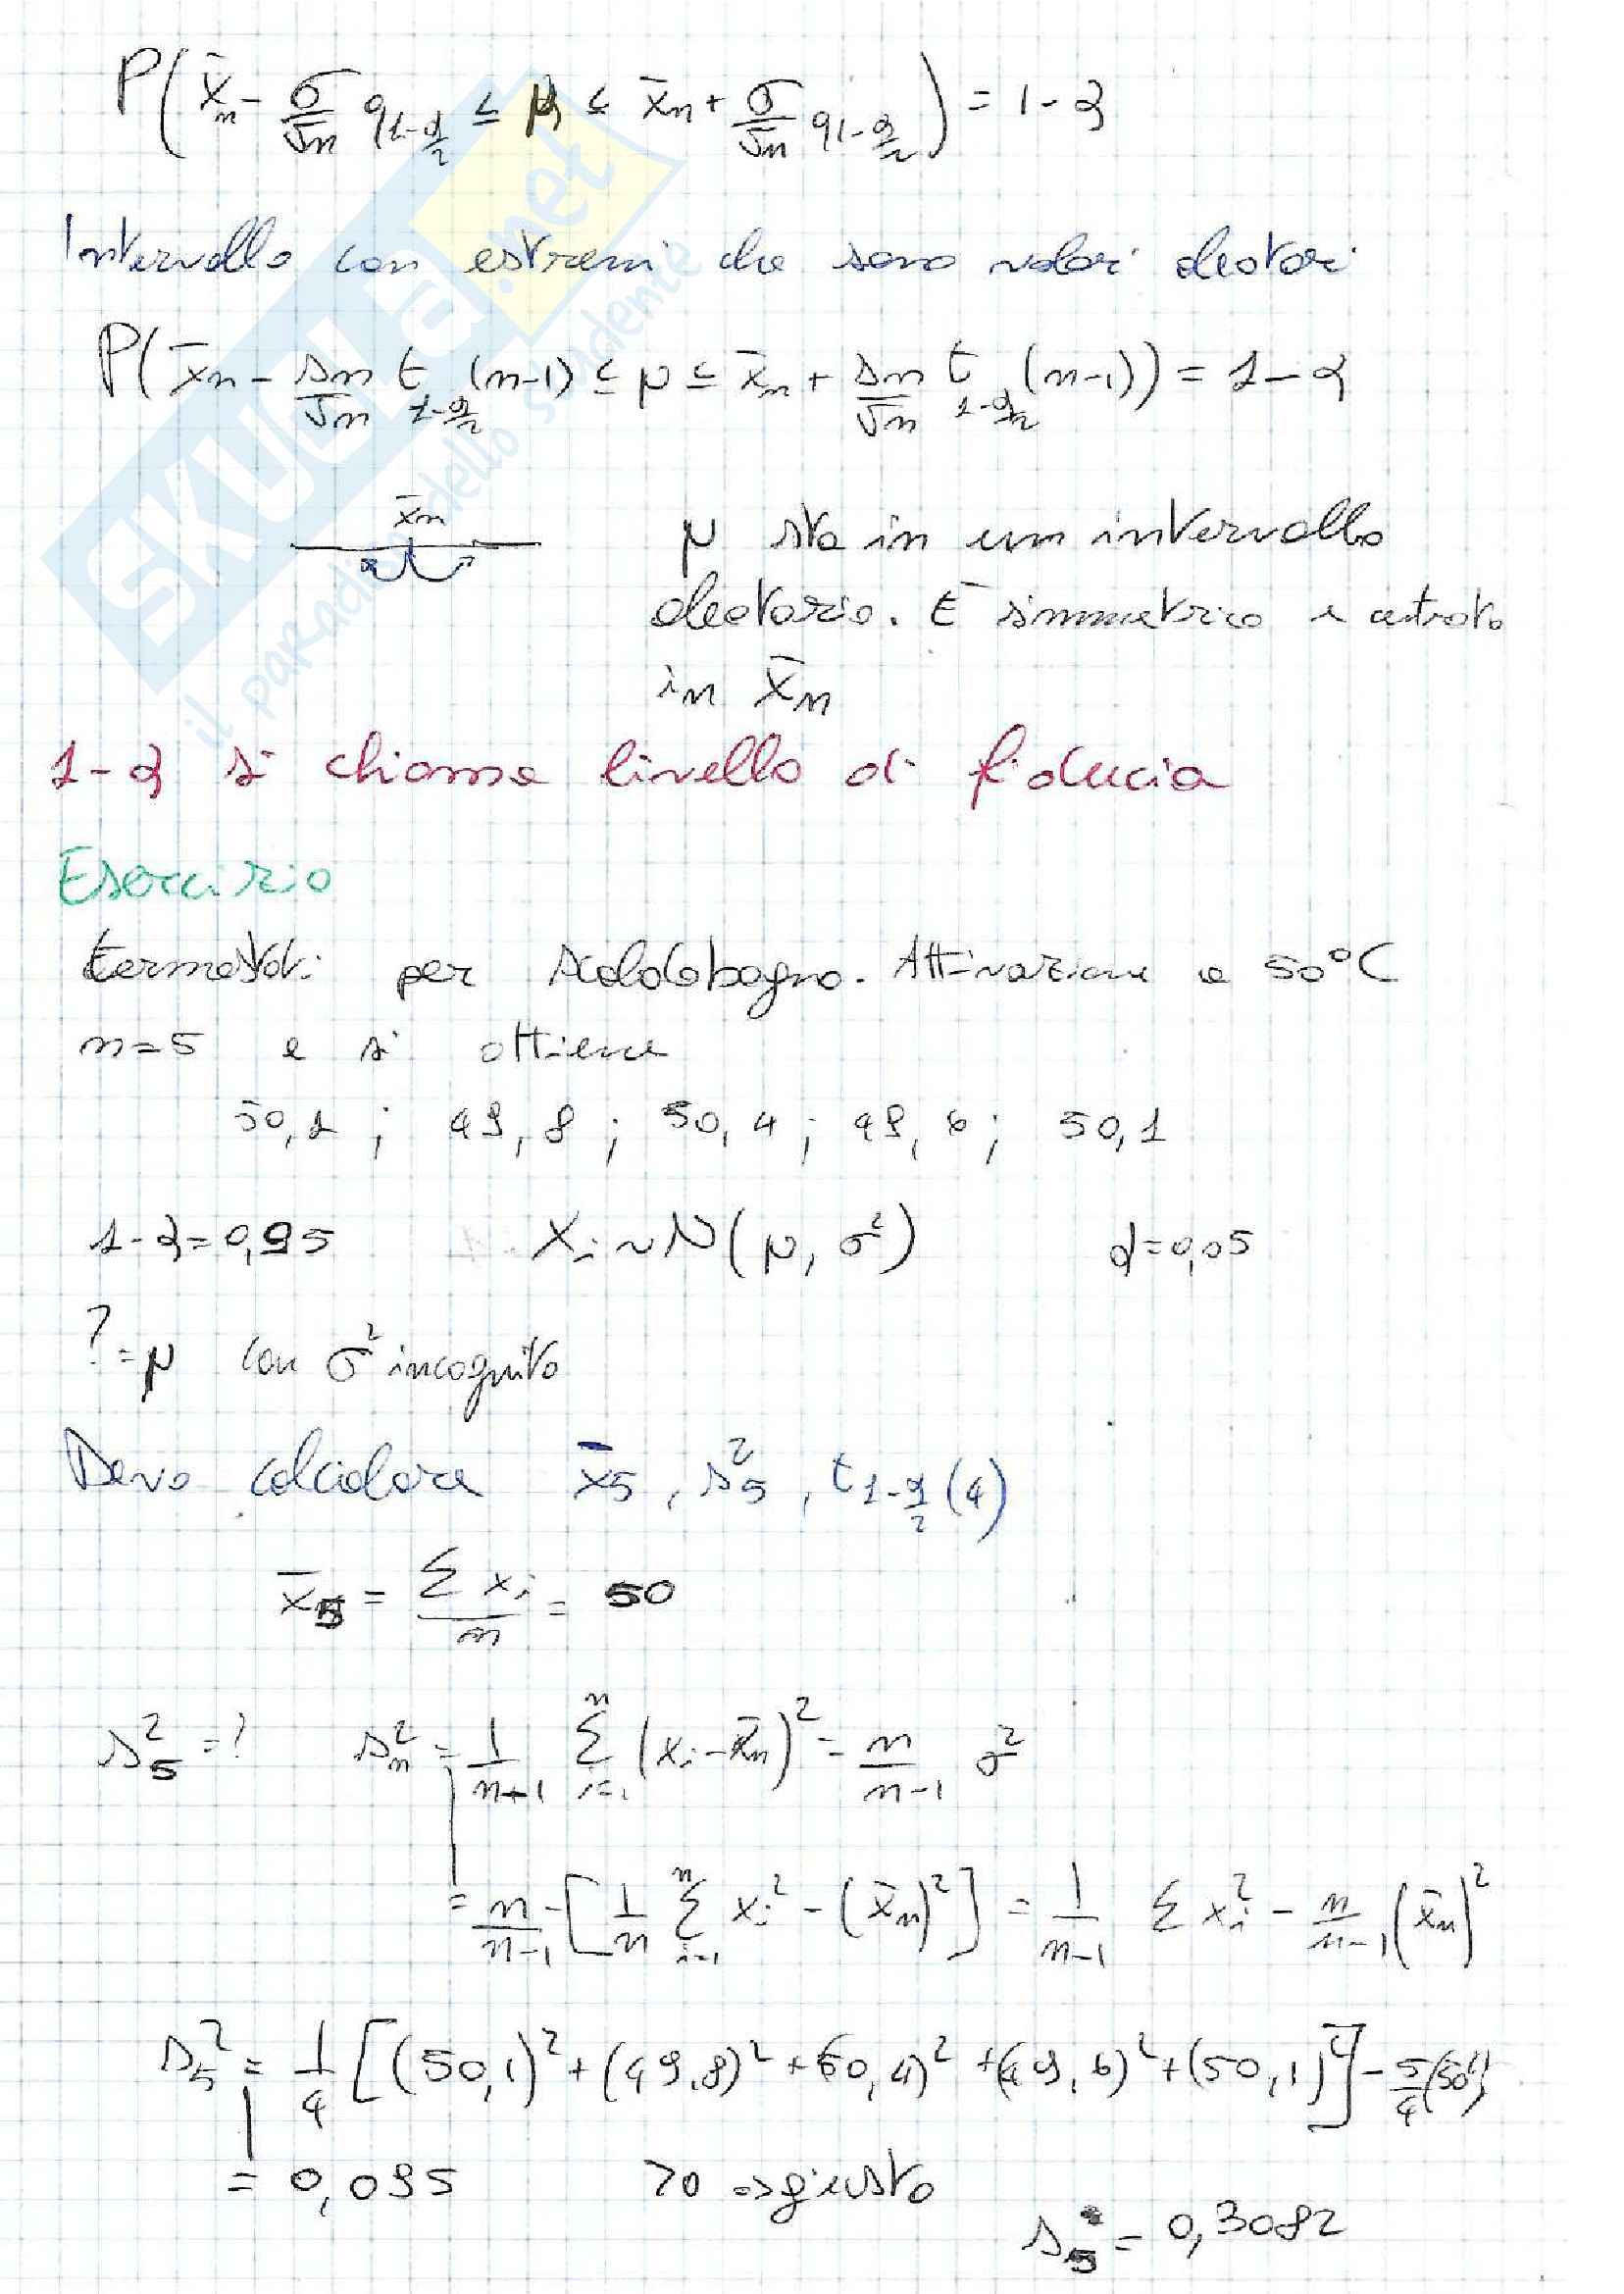 P(x̄n - σ/√n q1-α/2 ≤ μ ≤ x̄n + σ/√n q1-α/2) = 1-α
Intervallo con estremi che sono valori aleatori
P(x̄n - sn/√n t1-α/2 (n-1) ≤ μ ≤ x̄n + sn/√n t1-α/2 (n-1)) = 1-α
x̄n
μ sta in un intervallo
aleatorio. È simmetrico e centrato
in x̄n
1-α si chiama livello di fiducia
Esercizio
termostati per scaldabagno. Attivazione a 50°C
n=5 e si ottiene
50,1 ; 49,8 ; 50,4 ; 49,6 ; 50,1
1-α=0,95 Xi~N(μ, σ²) α=0,05
?=μ con σ² incognito
Devo calcolare x̄5, s²5, t1-α/2 (4)
x̄5 = Σxi/n = 50
s²5 =? s²n = 1/n+1 Σ i=1 n (xi-x̄n)² = n/n-1 σ²
= n/n-1 [1/n Σ i=1 n xi² - (x̄n)²] = 1/n-1 Σxi² - n/n-1 (x̄n)²
s²5 = 1/4 [(50,1)² + (49,8)² + (50,4)² + (49,6)² + (50,1)²] - 5/4 (50)²
= 0,095 >0 => giusto
s5 = 0,3082
SKUOLA.net
il paradiso dello studente